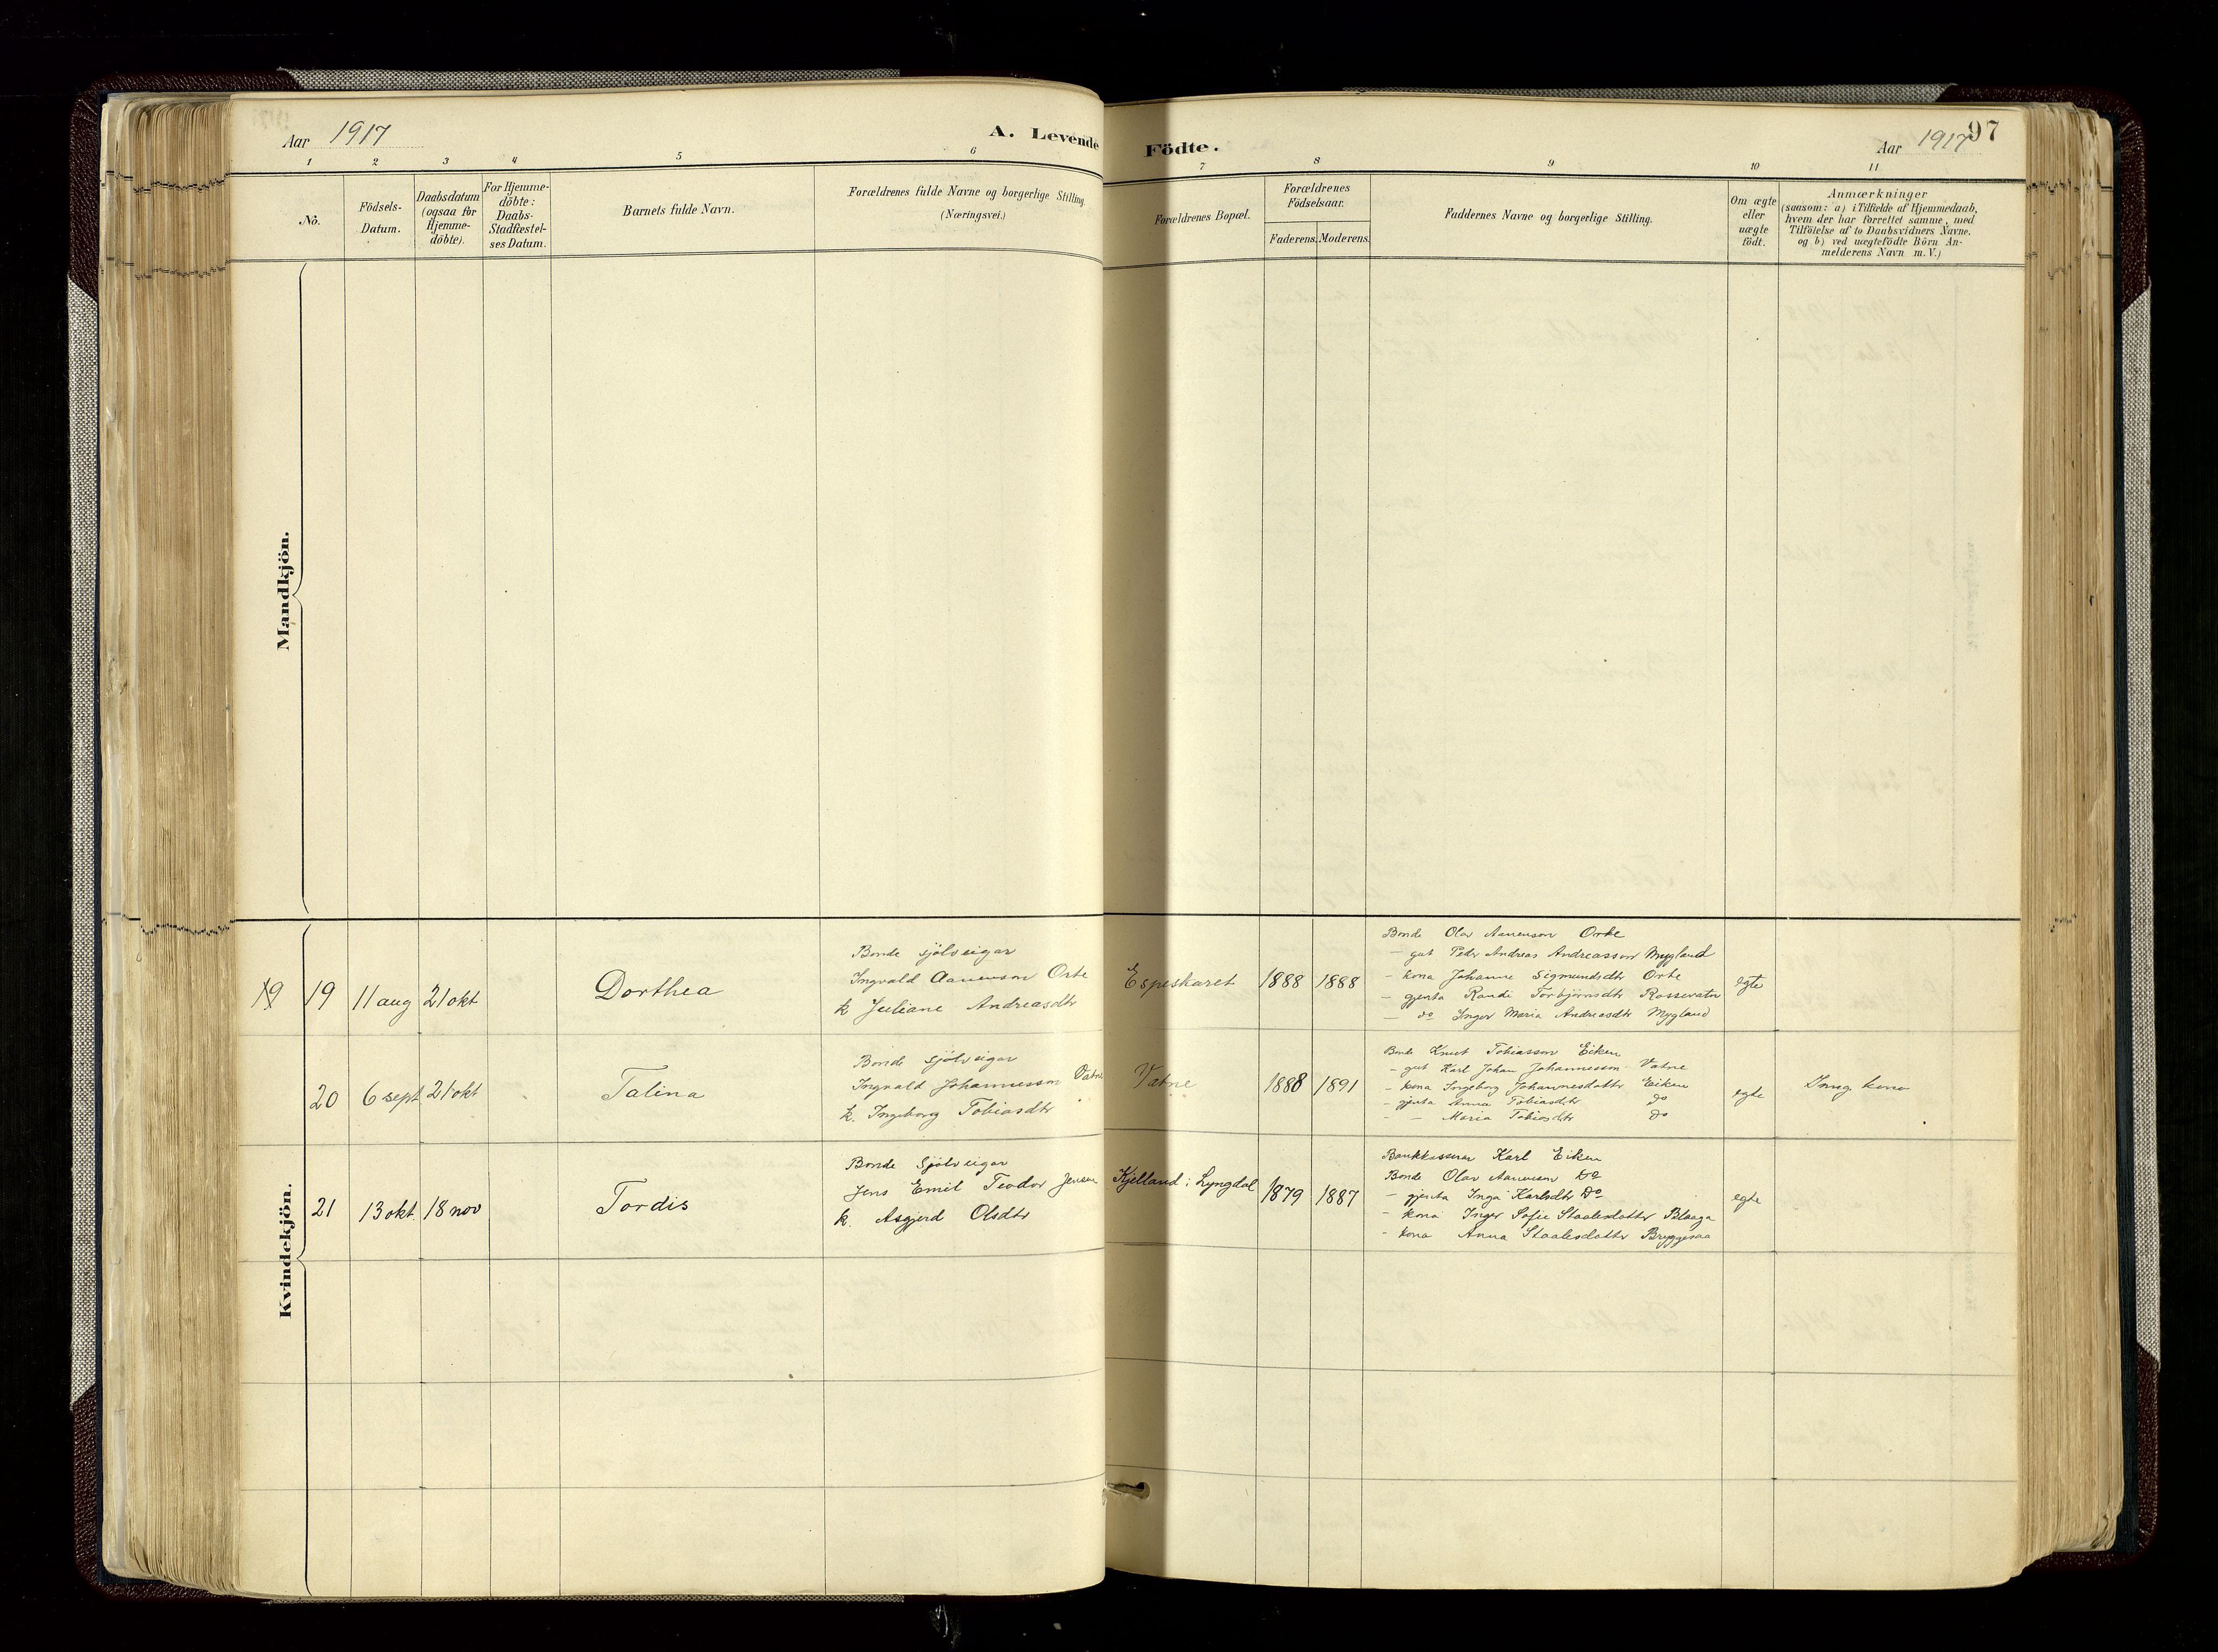 Aar 1917
A. Levende
Födte.
Aar 1917
97
1 2 3 4 5 6 7 8 9 10 11
No.
Födsels-
Datum.
Daabsdatum
(ogsaa for
Hjemme-
döbte).
For Hjemme-
döbte:
Daabs-
Stadfæstel-
ses Datum.
Barnets fulde Navn.
Forældrenes fulde Navne og borgerlige Stilling.
(Næringsvei.)
Forældrenes Bopæl.
Forældrenes
Födselsaar.
Faderens. Moderens.
Faddernes Navne og borgerlige Stilling.
Om ægte
eller
uægte
födt.
Anmærkninger
(saasom: a) i Tilfælde af Hjemmedaab,
hvem der har forrettet samme, med
Tilföielse af to Daabsvidners Navne.
og b) ved uægtefödte Börn An-
melderens Navn m. V.)
Mandkjön.
Kvindekjön.
19 19 11 aug 21 okt
Dorthea
Bonde sjölveigar
Ingvald Aanenson Orte
k Juliane Andreasdtr
Espeskaret
1888 1888
Bonde Olav Aanenson Orte
- gut Peder Andreas Andreasson Mygland
- kona Johanne Sigmundsdtr Orte
- gjenta Randi Torbjørnsdtr Rossevatn
- do Inger Maria Andreasdtr Mygland
egte
20 6 sept 21 okt
Talina
Bonde sjölveigar
Ingvald Johannesson Vatne
k. Ingeborg Tobiasdtr
Vatne
1888 1891
Bonde Knut Tobiasson Eiken
- gut Karl Johan Johannesson Vatne
- kona Ingeborg Johannesdatter Eiken
- gjenta Anna Tobiasdtr do
- - Maria Tobiasdtr do
egte
21 13 okt. 18 nov
Tordis
Bonde Sjölveigar
Jens Emil Teodor Jensen
k. Asgjerd Olsdtr
Kjelland i Lyngdal
1879 1887
Bankkasserar Karl Eiken
Bonde Olav Aanenson Do
- gjenta Inga Karlsdtr Do
- kona Inger Sofie Staalesdatter Blaaga
- kona Anna Staalesdatter Bryggesaa
egte